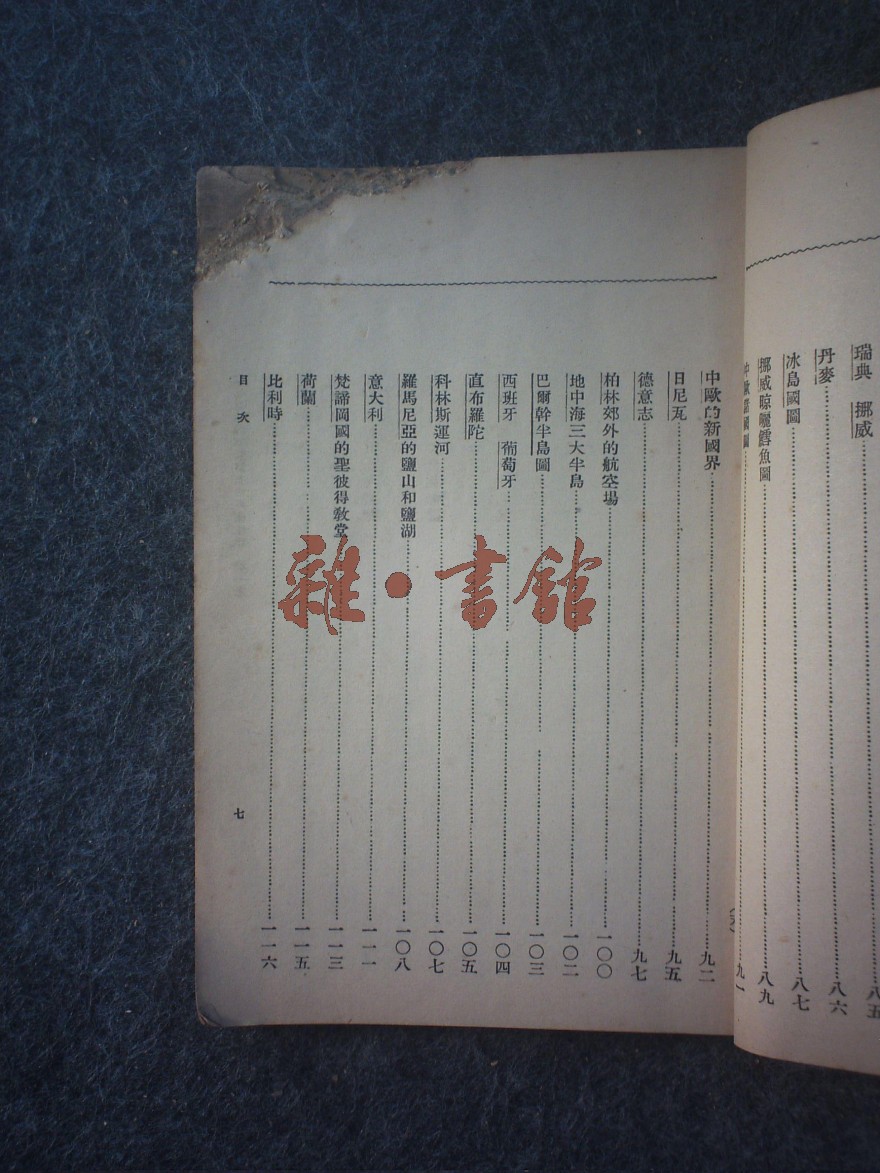 瑞典 挪威 八五
丹麥 八六
冰島國圖 八七
挪威晾曬鱈魚圖 八九
中歐諸國圖 九一
中歐的新國界 九二
日尼瓦 九五
德意志 九七
柏林郊外的航空場 一〇〇
地中海三大半島 一〇二
巴爾幹半島圖 一〇三
西班牙 葡萄牙 一〇四
直布羅陀 一〇五
科林斯運河 一〇七
羅馬尼亞的鹽山和鹽湖 一〇八
意大利 一一一
梵諦岡國的聖彼得教堂 一一三
荷蘭 一一五
比利時 一一六
目次 七
雜·書館